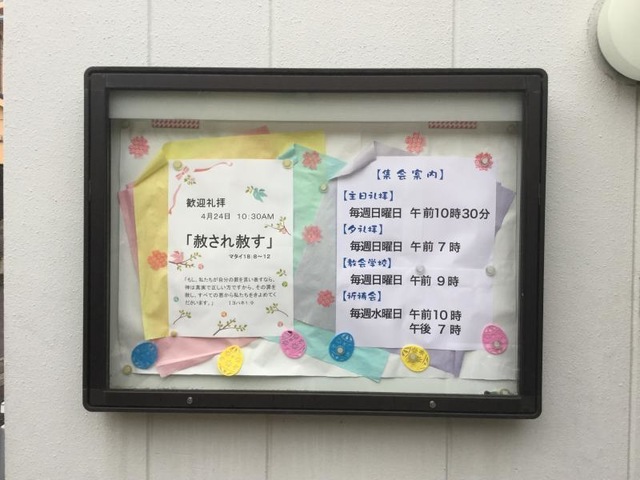 歓迎礼拝
4月24日 10:30AM
「赦され赦す」
マタイ18:8～12
「もし、私たちが自分の罪を言い表すなら、
神は真実で正しい方ですから、その罪を
赦し、すべての悪から私たちをきよめてく
ださいます。」 Ⅰヨハネ1:9
【集会案内】
【主日礼拝】
毎週日曜日 午前10時30分
【夕礼拝】
毎週日曜日 午前7時
【教会学校】
毎週日曜日 午前9時
【祈祷会】
毎週水曜日 午前10時
午後7時